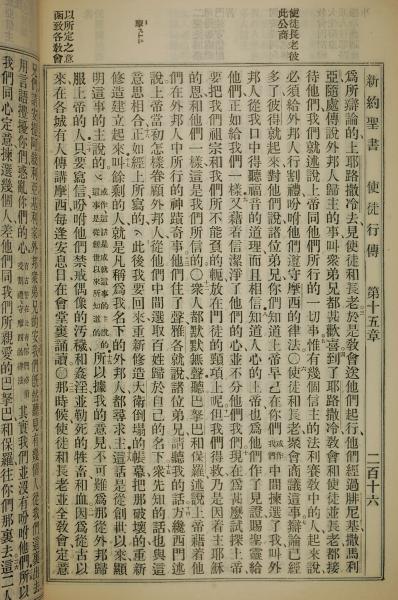 新約聖書 使徒行傳 第十五章 二百十六
使徒長老彼此公商
以所定之意函致各教會
爲所辯論的、上耶路撒冷去、見使徒和長老於是教會送他們起行、他們經過腓尼基、撒馬利
亞隨處傳說外邦人歸主的事叫衆弟兄都甚歡喜到了耶路撒冷教會和使徒並長老都接
待他們他們就述說上帝同他們所行的一切事惟有幾個信主的法利賽教中的人起來說、
必須給外邦人行割禮吩咐他們遵守摩西的律法○使徒和長老聚會商議這事辯論已經
多了彼得就起來對他們說諸位弟兄你們知道上帝早已在你們或作我們中間揀選了我叫外
邦人從我口中得聽福音的道理而且相信知道人心的上帝也爲他們作了見證賜聖靈給
他們正如給我們一樣又藉着信潔淨了他們的心並不分他們我們現在爲甚麼試探上帝
要把我們祖宗和我們所不能負的軛放在門徒的頸項上呢但我們得救乃是因着主耶穌
的恩和他們一樣這是我們所信的○衆人都默默無聲聽巴拏巴和保羅述說上帝藉着他
們在外邦人中所行的神蹟奇事他們住了聲雅各就說諸位弟兄請聽我的話方纔西門述
說上帝當初怎樣眷顧外邦人從他們中間選取百姓歸於自己的名下衆先知的話也與這
意思相合正如經上所寫的、此後我要回來重新修造大衛倒塌的帳幕把那破壞的重新
修造建立起來叫餘剩的人就是凡稱爲我名下的外邦人都尋求主這話是從創世以來顯
明這事的主說的所以據我的意見不可難爲那從外邦歸
服上帝的人只要寫信吩咐他們禁戒偶像的汚穢和姦淫並勒死的牲畜和血因爲從古以
來在各城有人傳講摩西每逢安息日在會堂裏誦讀○那時候使徒和長老並全教會定意
用言語攪擾你們惑亂你們的心 其實我們並沒有吩咐他們所以
我們同心定意揀選幾個人差他們同我們所親愛的巴拏巴和保羅往你們那裏去這二人